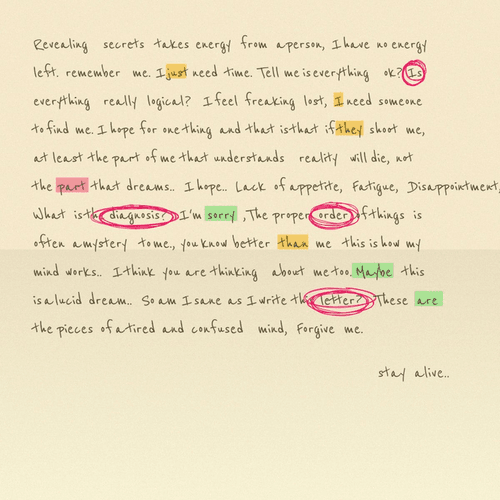 Revealing secrets takes energy from a person, I have no energy
left. remember me. I just need time. Tell me is everything ok? Is
everything really logical? I feel freaking lost, I need someone
to find me. I hope for one thing and that is that if they shoot me,
at least the part of me that understands reality will die, not
the part that dreams.. I hope.. Lack of appetite, Fatigue, Disappointment,
What is the diagnosis? I'm sorry , The proper order of things is
often a mystery to me., you know better than me this is how my
mind works.. I think you are thinking about me too. Maybe this
is a lucid dream.. So am I sane as I write this letter? These are
the pieces of a tired and confused mind, Forgive me.
stay alive..